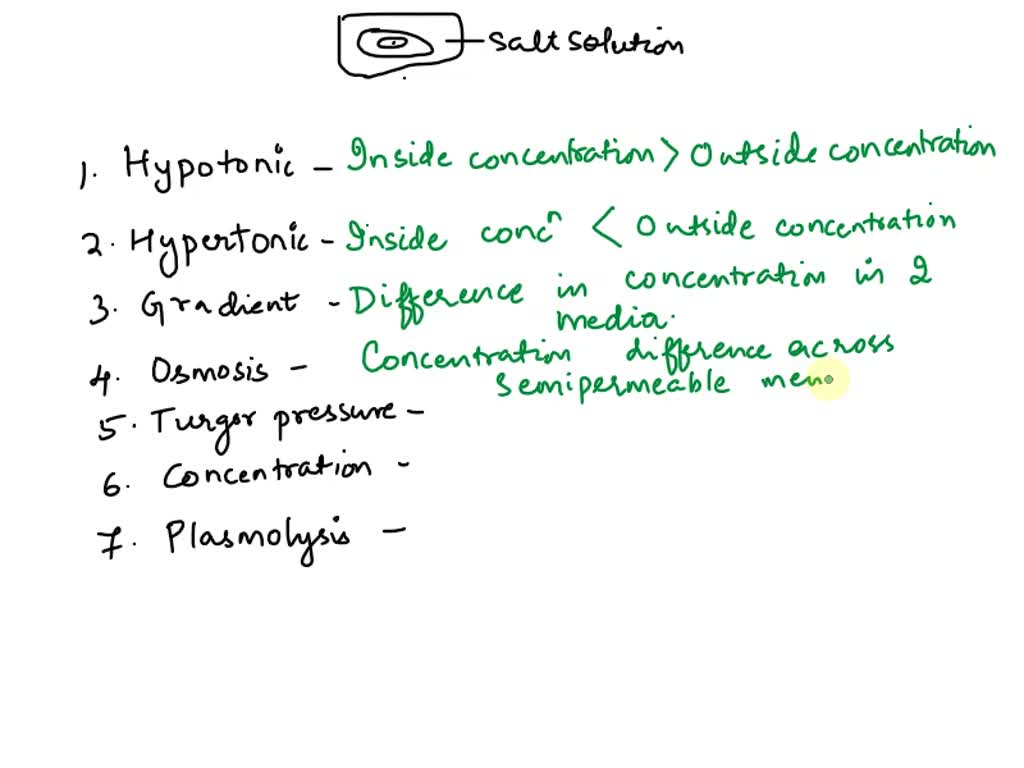 salt solution
1. Hypotonic - Inside concentration > Outside concentration
2. Hypertonic - Inside concⁿ < Outside concentration
3. Gradient - Difference in concentration in 2
media.
4. Osmosis - Concentration difference across
semipermeable mem
5. Turgor pressure -
6. Concentration -
7. Plasmolysis -